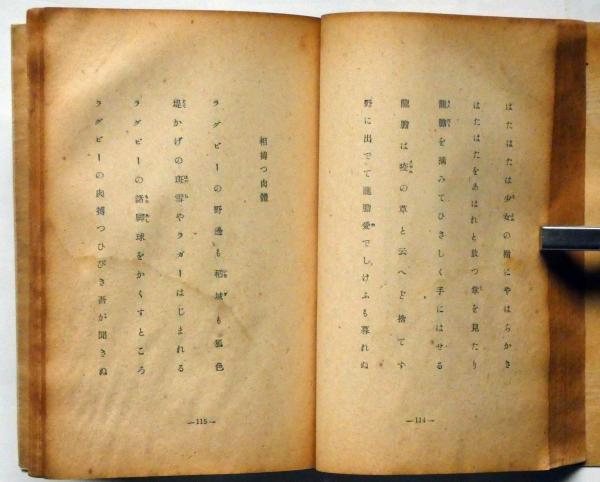 はたはたは少女の指にやはらかき
はたはたをあはれと放つ掌を見たり
龍膽を摘みてひさしく手にはせる
龍膽は疫の草と云へど捨てず
野に出でて龍膽愛でしけふも暮れぬ
—114—
相搏つ肉體
ラグビーの野邊も稻城も狐色
堤かげの斑雪やラガーはじまれる
ラグビーの諸脚球をかくすところ
ラグビーの肉搏つひびき吾が聞きぬ
—115—